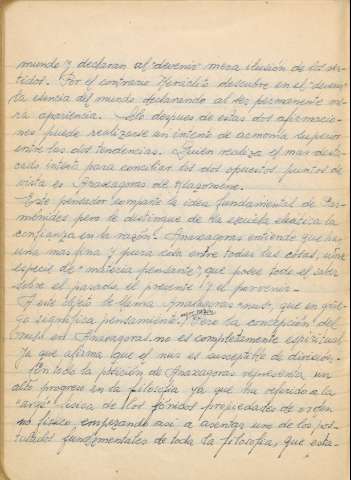 mundo y declaran al "devenir" mera ilusión de los sen-
tidos. Por el contrario Heráclito descubre en el "devenir"
la esencia del mundo declarando al ser permanente me-
ra apariencia. Sólo después de estas dos afirmacio-
nes puede realizarse un intento de armonía superior
entre las dos tendencias. Quien realiza el más desta-
cado intento para conciliar los dos opuestos puntos de
vista es Anaxágoras de Clazomene.
Este pensador comparte la idea fundamental de Par-
ménides pero le distingue de la escuela eleática la
confianza en la razón. Anaxágoras entiende que hay
una más fina y pura esta entre todas las cosas, una
especie de "materia pensante" que posee todo el saber
sobre el pasado el presente y el porvenir.
A este objeto le llama Anaxágoras "nus", que en grie-
go significa pensamiento, Pero la concepción del
nus en Anaxágoras no es completamente espiritual
ya que afirma que el nus es susceptible de división.
Con todo la posición de Anaxágoras representa un
alto progreso en la filosofía ya que ha referido a la
"arjé" física de los jónidos propiedades de orden
no físico empezando así a asentar uno de los pos-
tulados fundamentales de toda la filosofía, que esta-